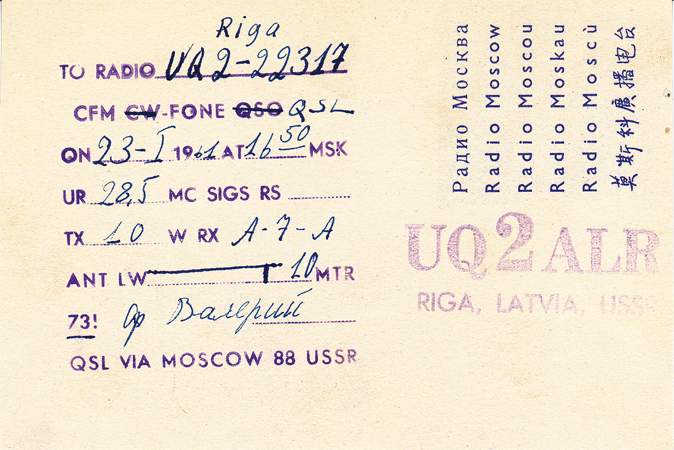 Riga
TO RADIO UQ2-22317
CFM CW-FONE QSO QSL
ON 23-I 1961 AT 16 50 MSK
UR 28,5 MC SIGS RS
TX 10 W RX A-7-A
ANT LW 10 MTR
73! Op Валерий
QSL VIA MOSCOW 88 USSR
Радио Москва
Radio Moscow
Radio Moscou
Radio Moskau
Radio Moscù
莫斯科廣播电台
UQ2ALR
RIGA, LATVIA, USSR